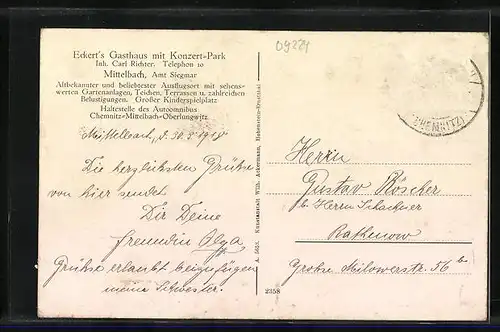 Eckert's Gasthaus mit Konzert-Park
Inh. Carl Richter. Telephon 10
Mittelbach, Amt Siegmar
Altbekannter und beliebtester Ausflugsort mit sehens-
werten Gartenanlagen, Teichen, Terrassen u. zahlreichen
Belustigungen. Großer Kinderspielplatz
Haltestelle des Autoomnibus
Chemnitz-Mittelbach-Oberlungwitz.
d. 30.
Die herzlichsten Grüße
von hier sendet
Dir Deine
Freundin Olga
Grüße erlaubt beizufügen
meine Schwester.
A. 5653. Kunstanstalt Wilh. Ackermann, Hohenstein-Ernstthal
09224
(CHEMNITZ)
Herrn
Gustav Röscher
b. Herrn
Rathenow
Große Milowerstr. 56 b
2358